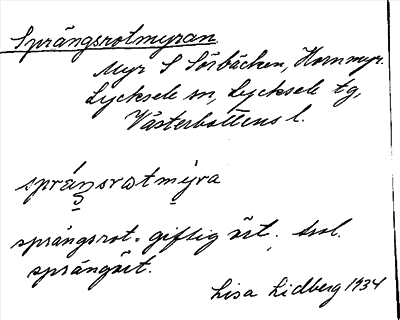 Sprängsrotmyran
Myr S Sörbäcken, Hornmyr.
Lycksele sn, Lycksele tg,
Västerbottens l.
spránsrωtmỵra
sprängsrot = giftig ört.
sprängört.
Lisa Lidberg 1934